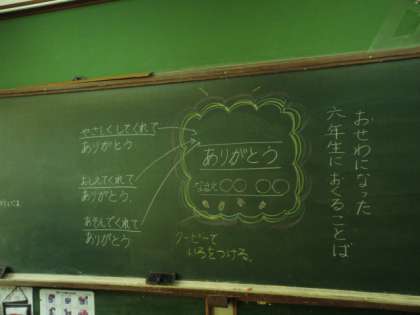 おせわになった
六年生におくることば
やさしくしてくれて
ありがとう
おしえてくれて
ありがとう。
あそんでくれて
ありがとう
ありがとう
なまえ○○ ○○
クーピーで
いろをつける。